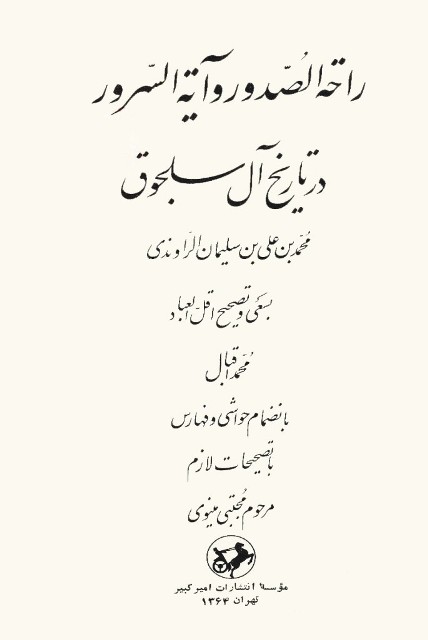 راحة الصّدور و آیة السّرور
در تاریخ آل سلجوق
محمّد بن علی بن سلیمان الرّاوندی
بسعی و تصحیح اقلّ العباد
محمّد اقبال
بانضمام حواشی و فهارس
با تصحیحات لازم
مرحوم مجتبی مینوی
مؤسسهٔ انتشارات امیرکبیر
تهران ۱۳۶۴